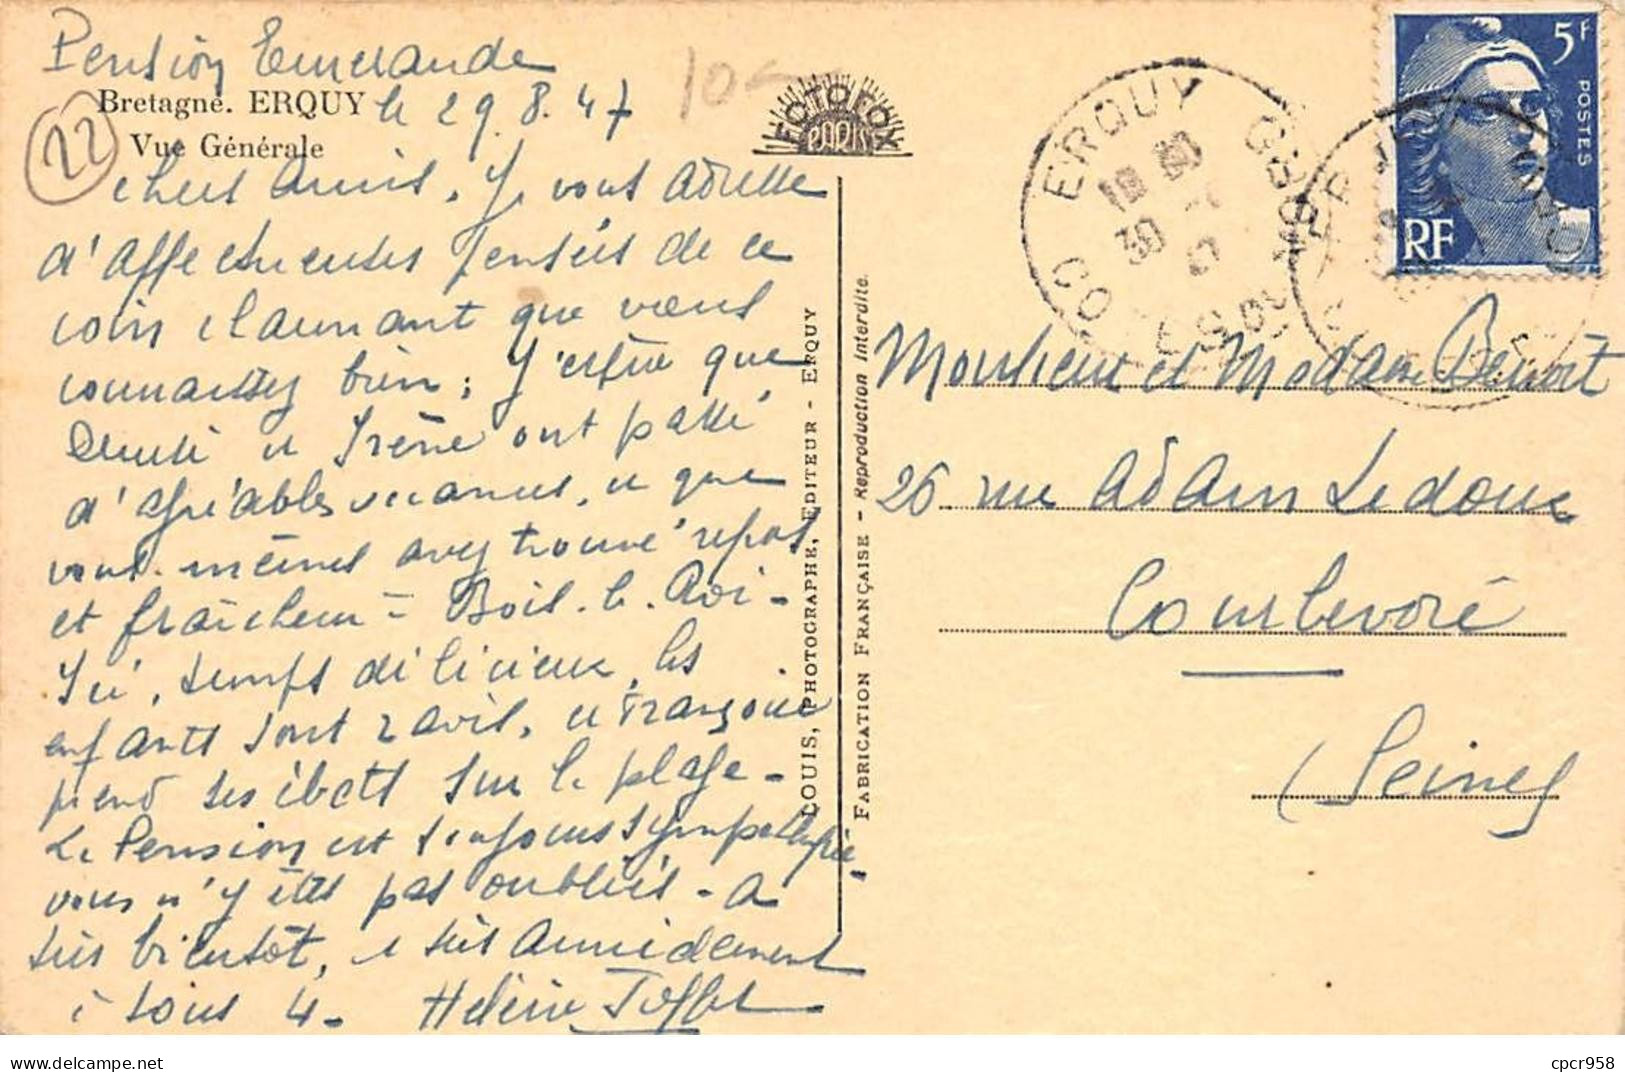 Pension Emeraude
10
Bretagne. ERQUY
le 29.8.47
22
Vue Générale
FOTOFOX
PARIS
chers Amis, Je vous adresse
d'affectueuses pensées de ce
coin charmant que vous
connaissez bien; J'espère que
et Irène ont passé
d'agréables vacances, et que
vous-mêmes avez trouvé repos
et fraîcheur à Bois-le-Roi -
Ici, temps délicieux, les
enfants sont ravis, et Françoise
prend ses ébats sur la plage -
La Pension est toujours sympathique
vous n'y êtes pas oubliés - A
très bientôt, et très amicalement
à tous 4 - Hélène
LOUIS, PHOTOGRAPHE, EDITEUR - ERQUY
FABRICATION FRANÇAISE - Reproduction Interdite.
ERQUY
COTES DU NORD
30
5F
POSTES
RF
Monsieur et Madame Benoit
26 rue Adam Ledoux
Courbevoie
(Seine)
cpcr958